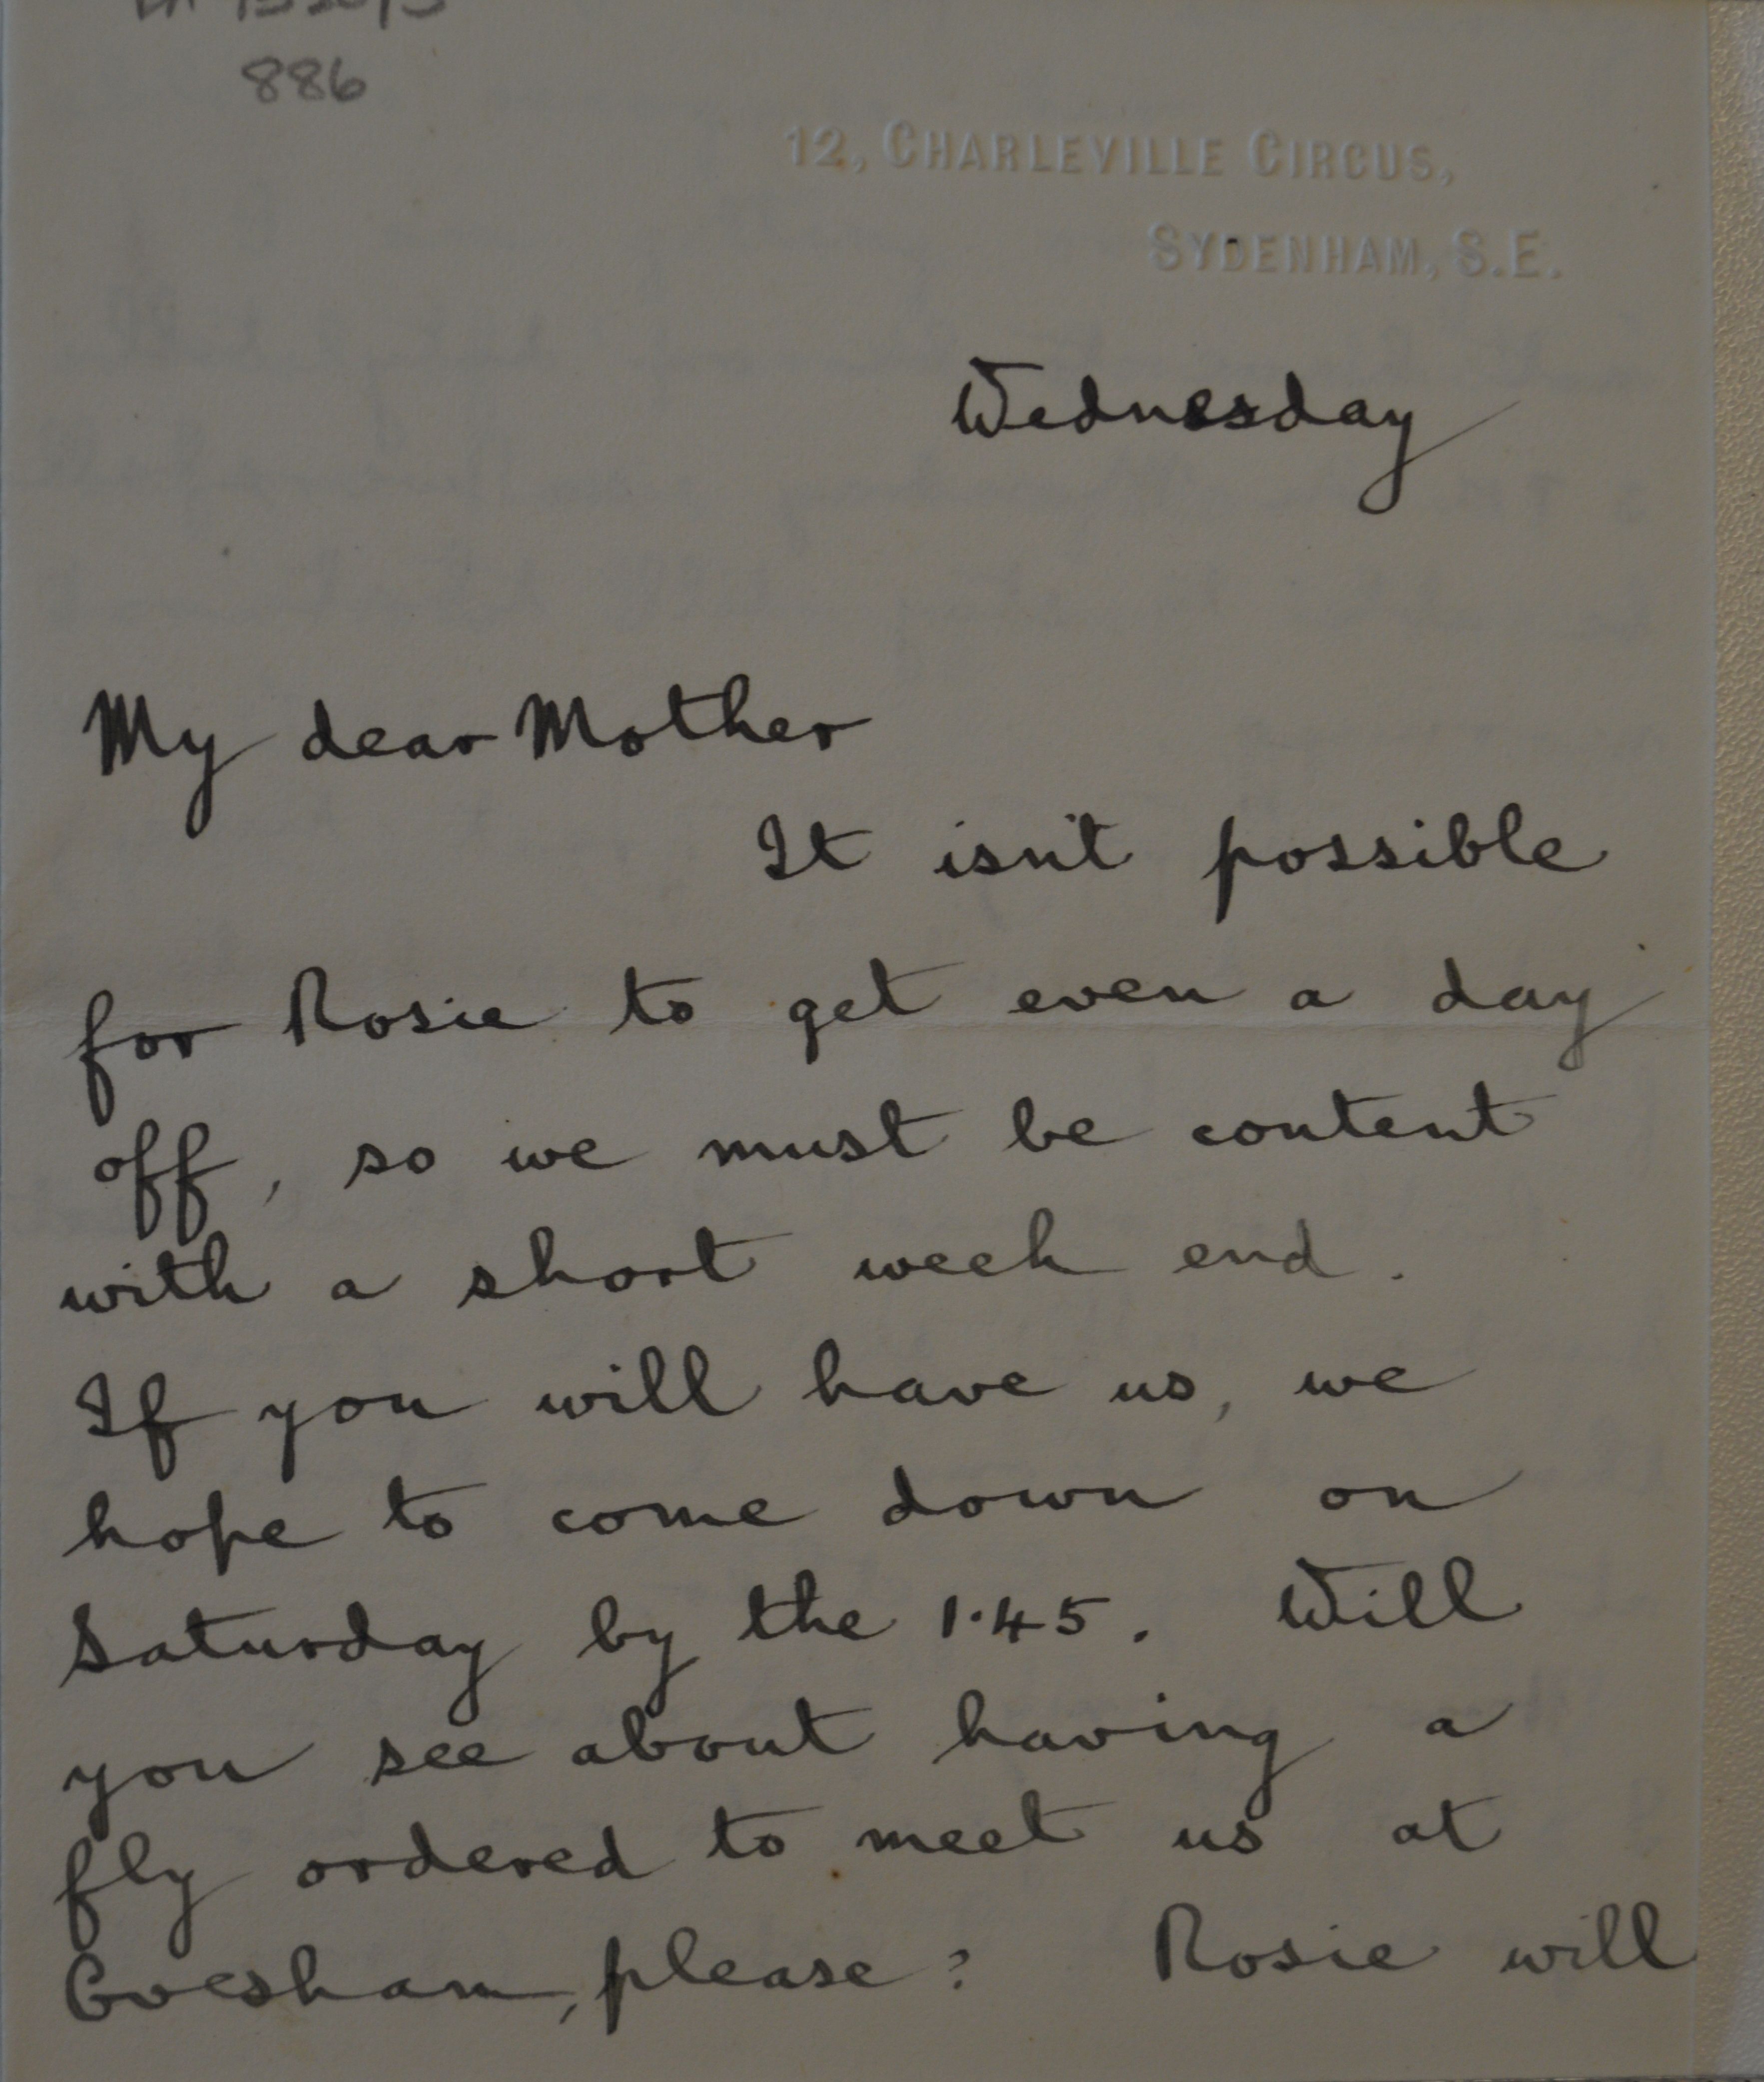 886
12, CHARLEVILLE CIRCUS,
SYDENHAM, S.E.
Wednesday
My dear Mother
It isn't possible
for Rosie to get even a day
off, so we must be content
with a short week end.
If you will have us, we
hope to come down on
Saturday by the 1.45. Will
you see about having a
fly ordered to meet us at
Evesham, please? Rosie will